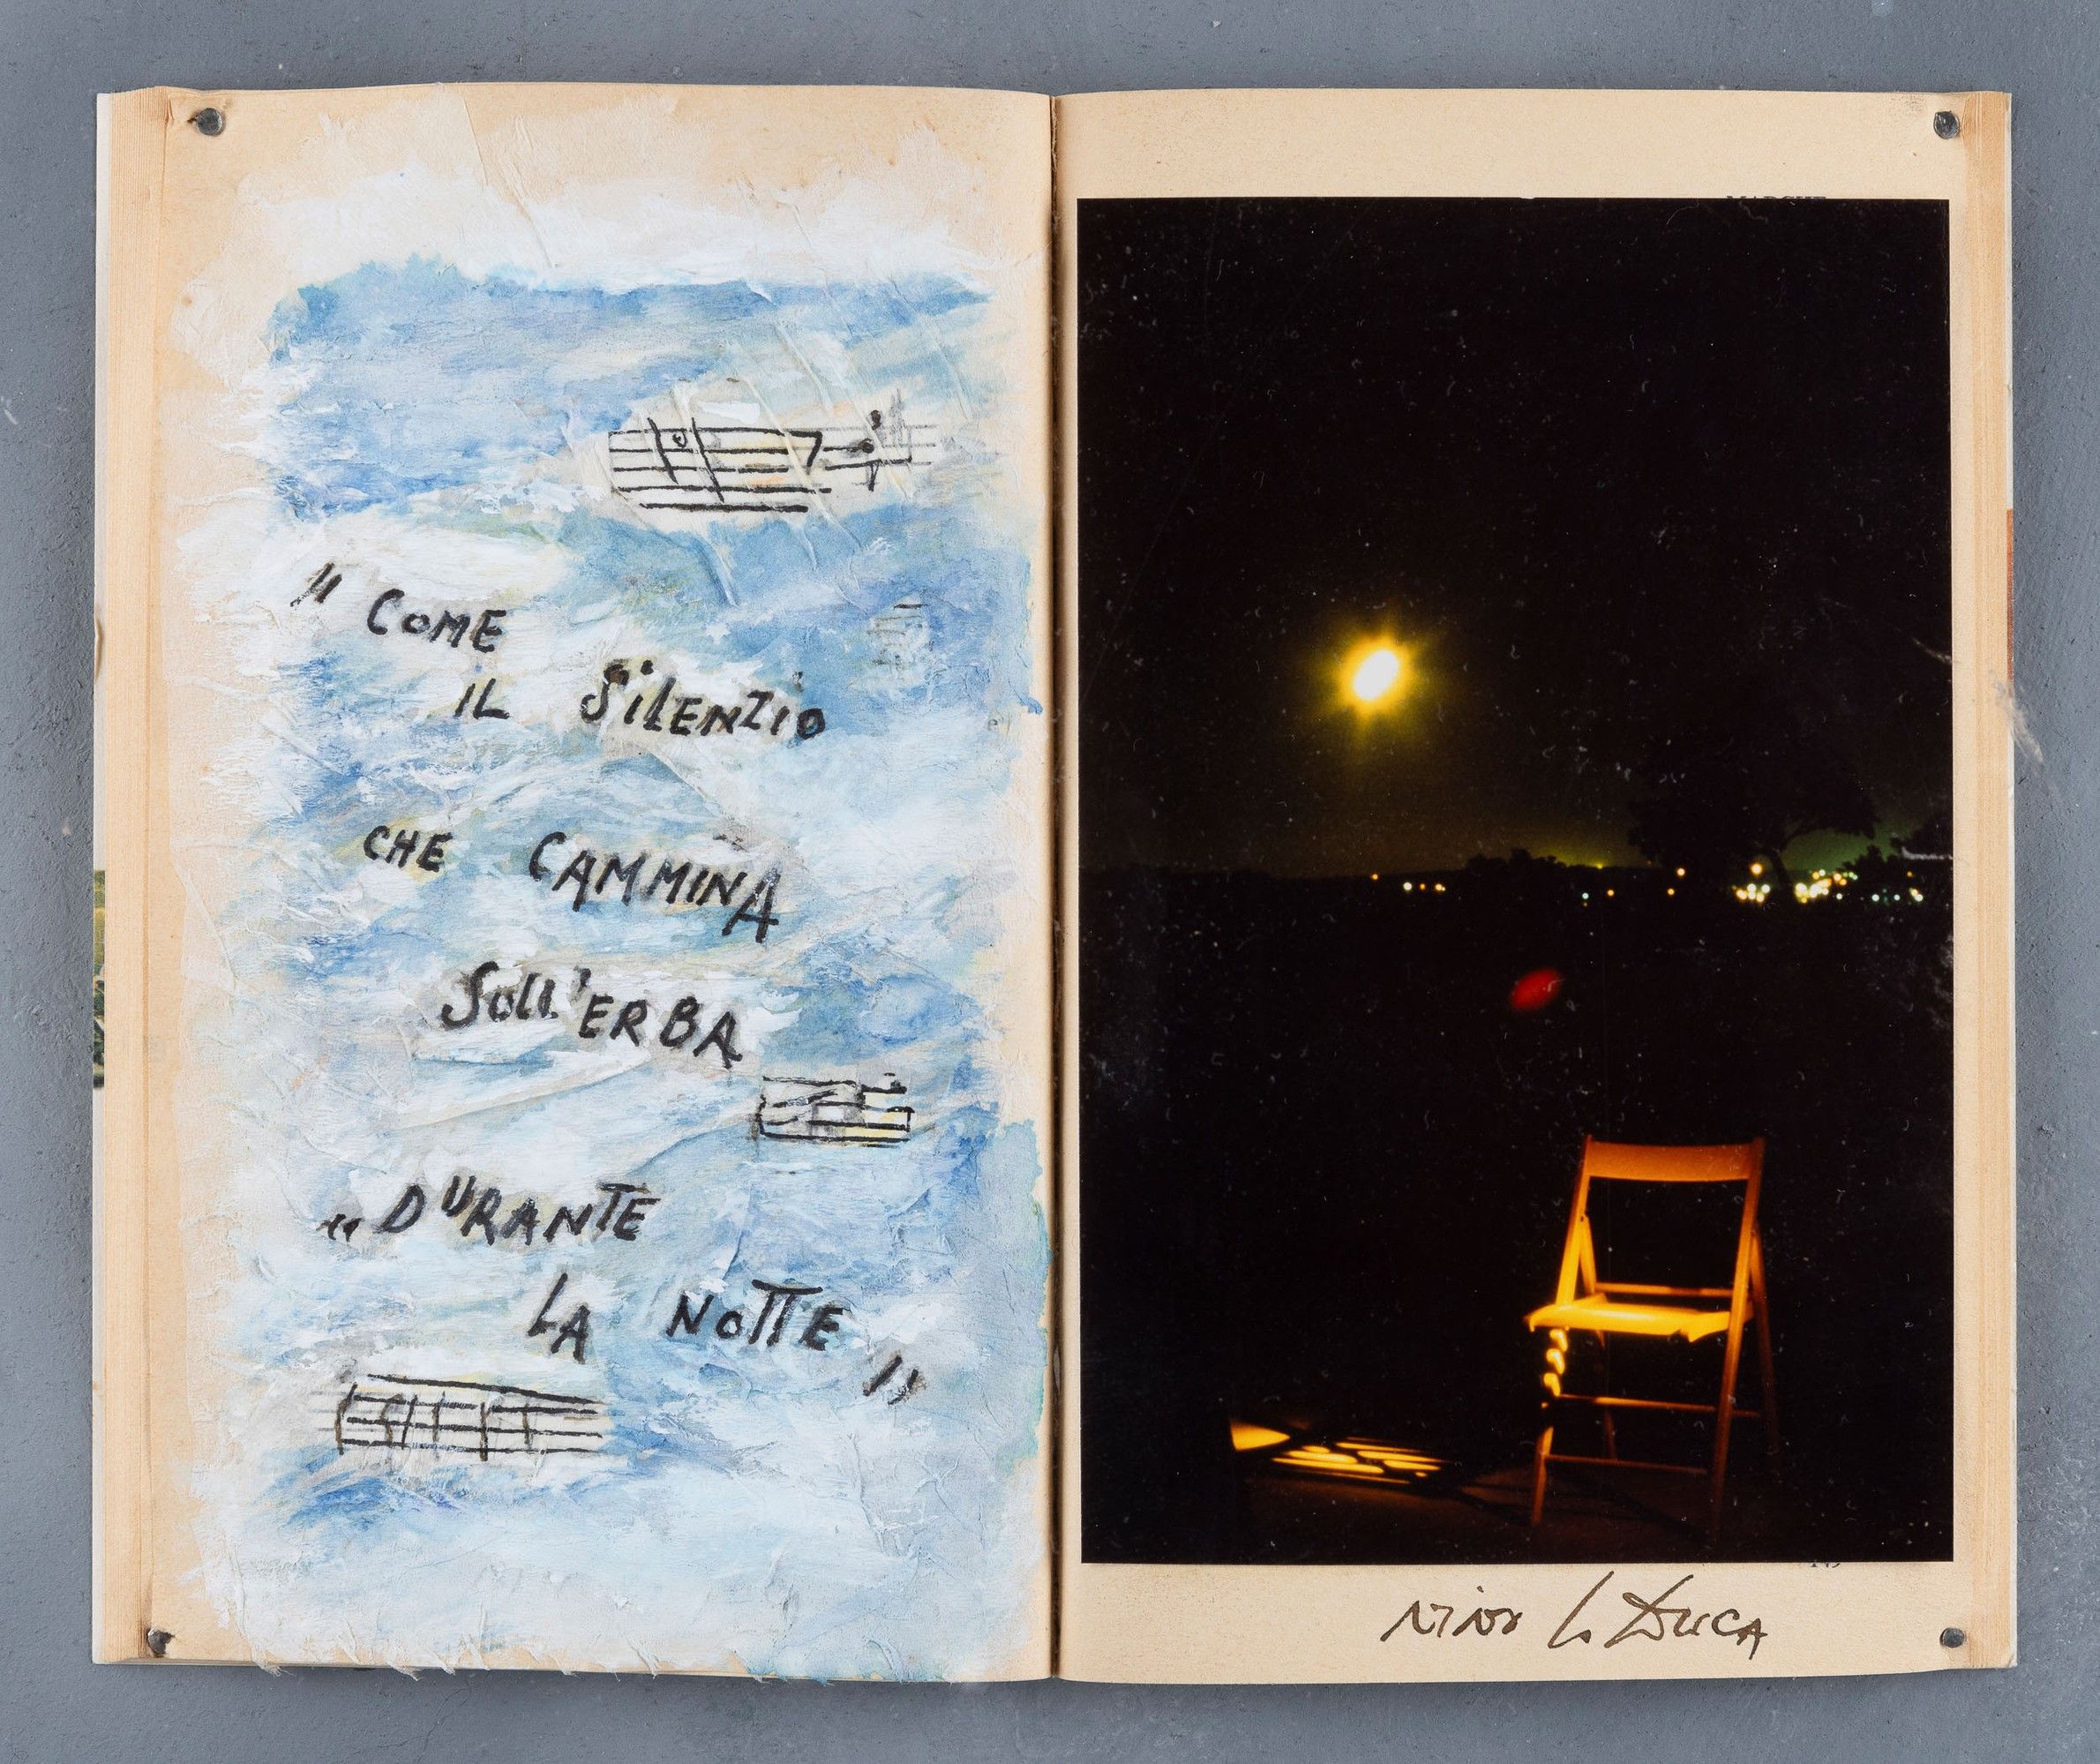 " COME
IL SiLENZiO
CHE CAMMINA
SULL'ERBA
" DURANTE
LA NOTTE "
NINO Lo DUCA